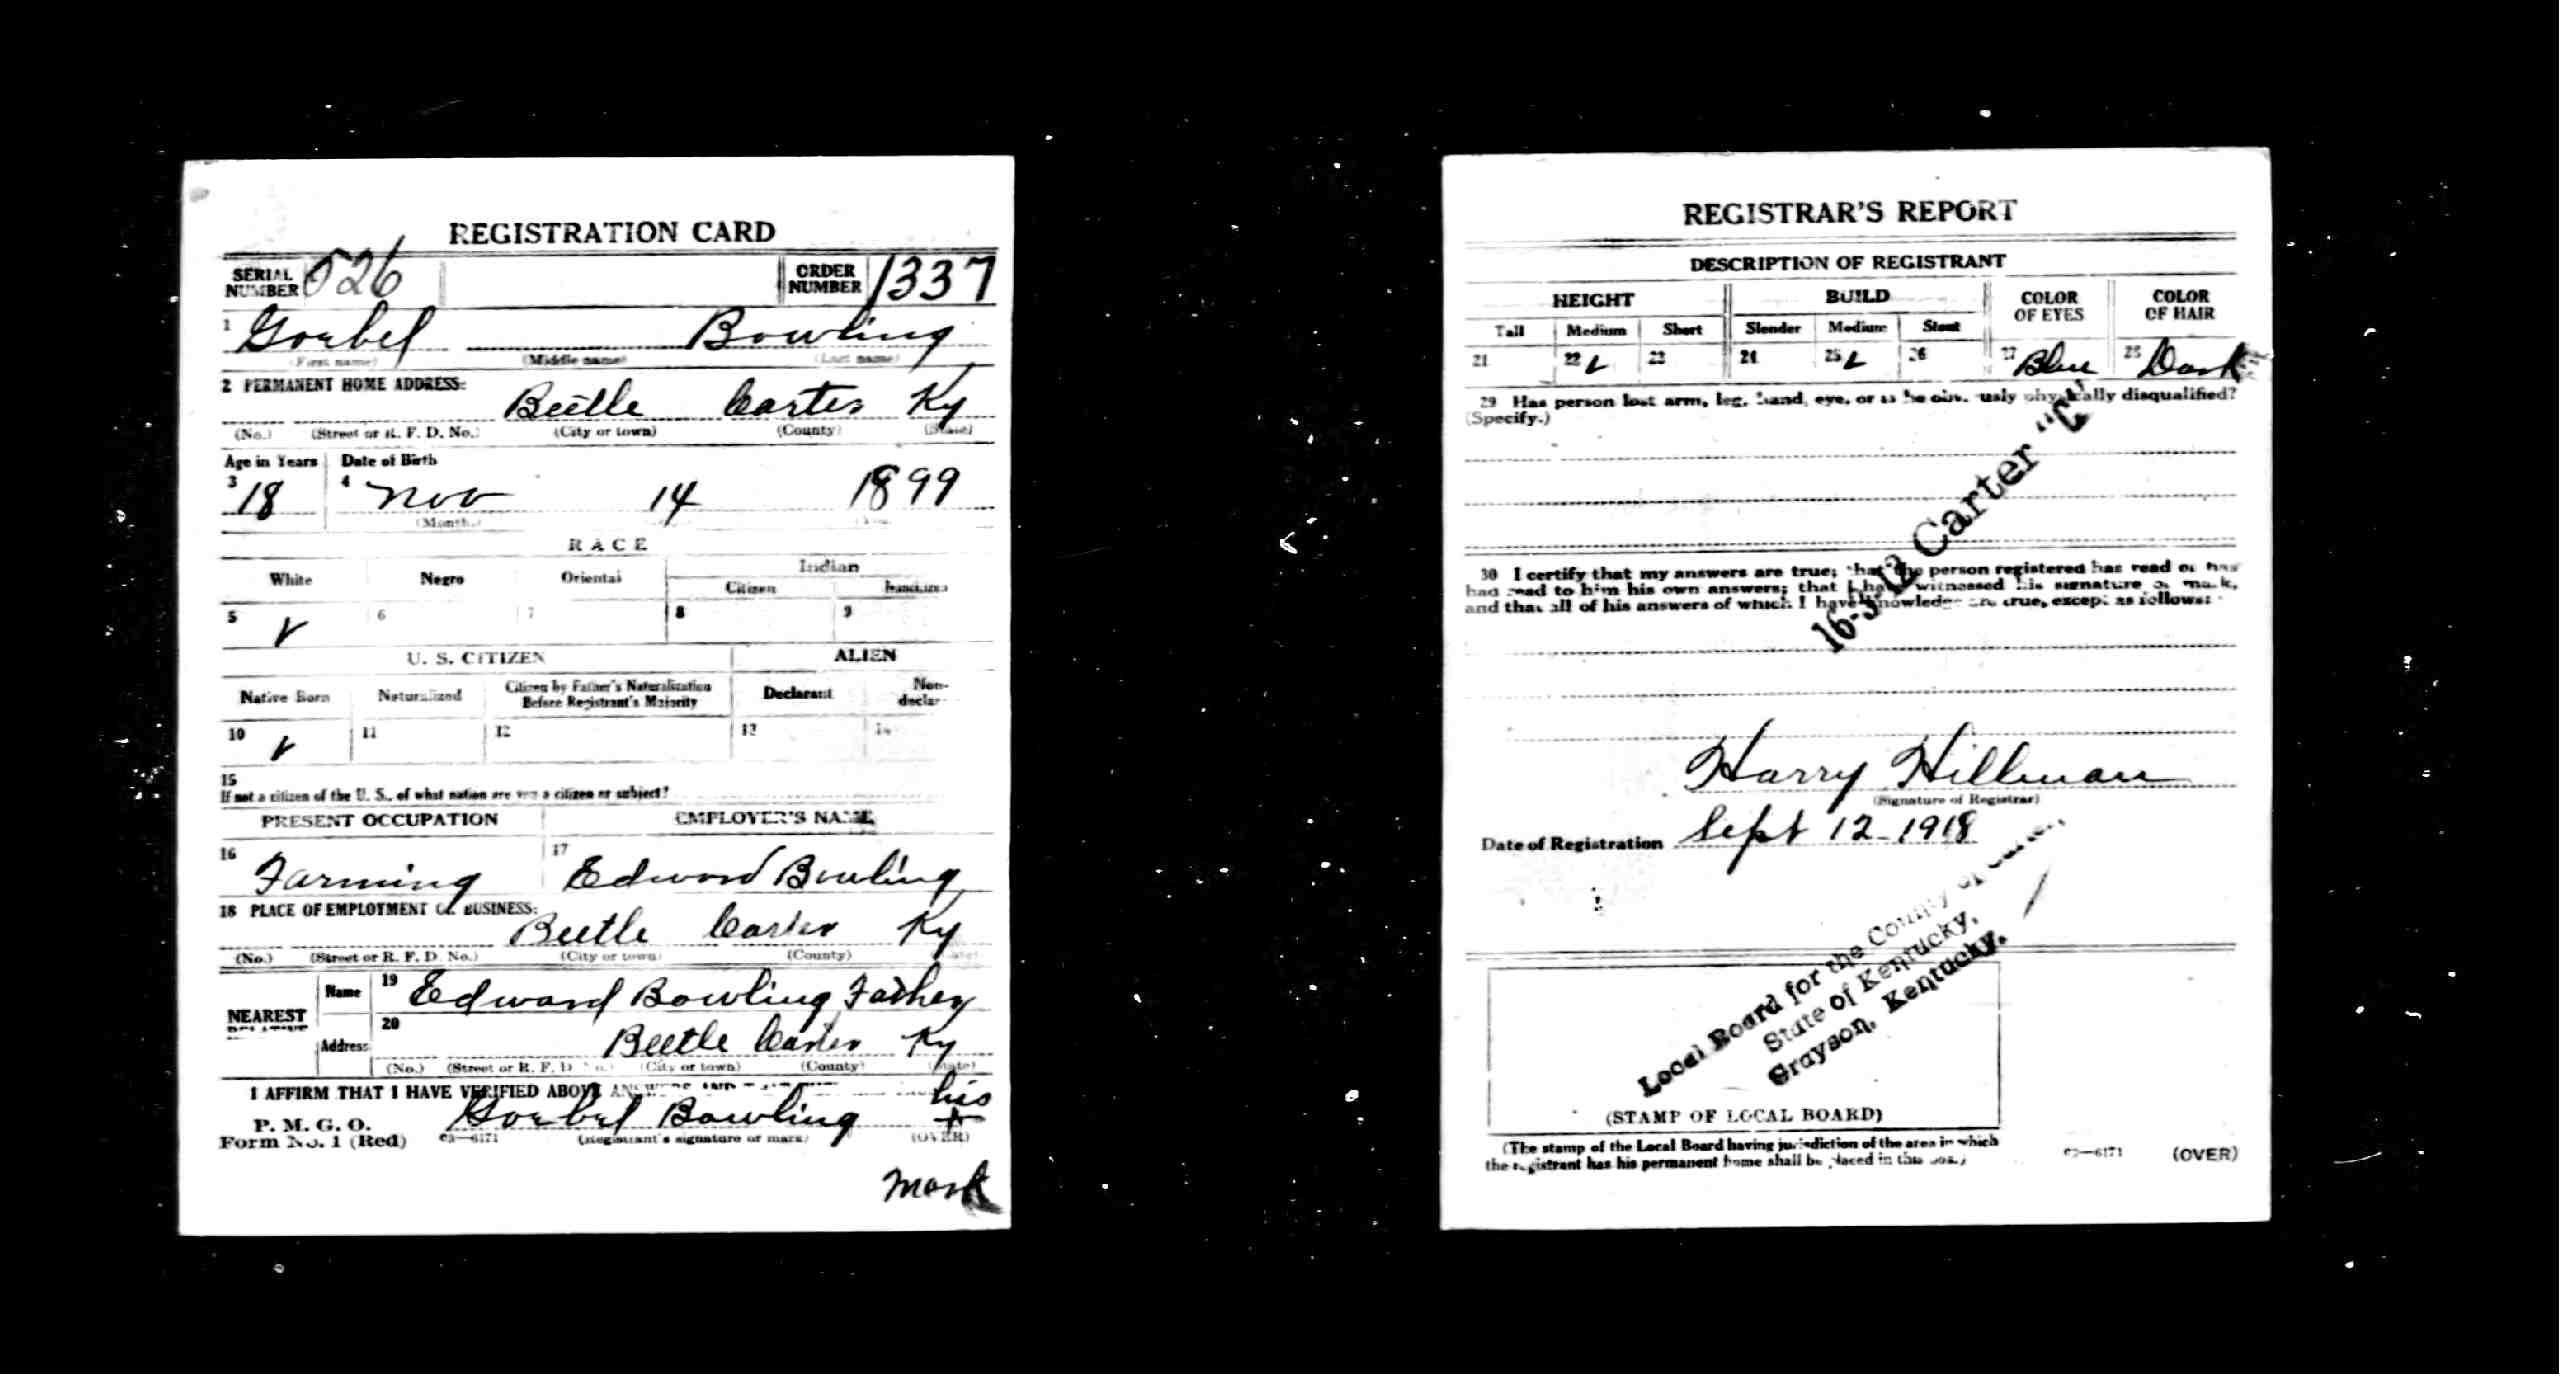 REGISTRATION CARD
SERIAL NUMBER 526 ORDER NUMBER 1337
1 Goebel Bowling
(First name) (Middle name) (Last name)
2 PERMANENT HOME ADDRESS:
Beetle Carter Ky
(No.) (Street or R. F. D. No.) (City or town) (County) (State)
Age in Years Date of Birth
3 18 4 Nov 14 1899
(Month.)
RACE
White Negro Oriental Indian
Citizen
5 ✓ 6 7 8 9
U. S. CITIZEN ALIEN
Native Born Naturalized Citizen by Father's Naturalization Before Registrant's Majority Declarant Non-declar-
10 ✓ 11 12 13 14
15
If not a citizen of the U. S., of what nation are you a citizen or subject?
PRESENT OCCUPATION EMPLOYER'S NAME
16 Farming 17 Edward Bowling
18 PLACE OF EMPLOYMENT OR BUSINESS:
Beetle Carter Ky
(No.) (Street or R. F. D. No.) (City or town) (County) (State)
NEAREST RELATIVE
Name 19 Edward Bowling Father
Address 20 Beetle Carter Ky
(No.) (Street or R. F. D. No.) (City or town) (County) (State)
I AFFIRM THAT I HAVE VERIFIED ABOVE ANSWERS AND
P. M. G. O. Goebel Bowling his +
Form No. 1 (Red) 03—6171 (Registrant's signature or mark) (OVER)
mark
REGISTRAR'S REPORT
DESCRIPTION OF REGISTRANT
HEIGHT BUILD COLOR OF EYES COLOR OF HAIR
Tall Medium Short Slender Medium Stout
21 22 ✓ 23 24 25 ✓ 26 27 Blue 28 Dark
29 Has person lost arm, leg, hand, eye, or is he obviously physically disqualified?
(Specify.)
16-3-12 Carter "C"
30 I certify that my answers are true; that the person registered has read or has
had read to him his own answers; that I have witnessed his signature or mark,
and that all of his answers of which I have knowledge are true, except as follows:
Harry Hillman
(Signature of Registrar)
Date of Registration Sept 12-1918
Local Board for the County of Carter,
State of Kentucky,
Grayson, Kentucky.
(STAMP OF LOCAL BOARD)
(The stamp of the Local Board having jurisdiction of the area in which
the registrant has his permanent home shall be placed in this box.)
03—6171 (OVER)